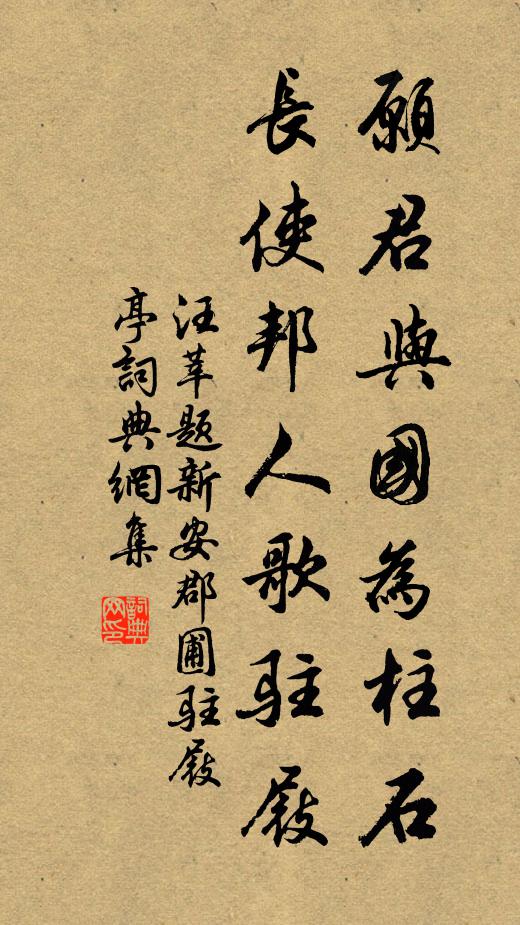 願君與國為柱石
長使邦人歌駐屐
汪莘題新安郡圃駐屐
亭詞典網集
詞典
网印